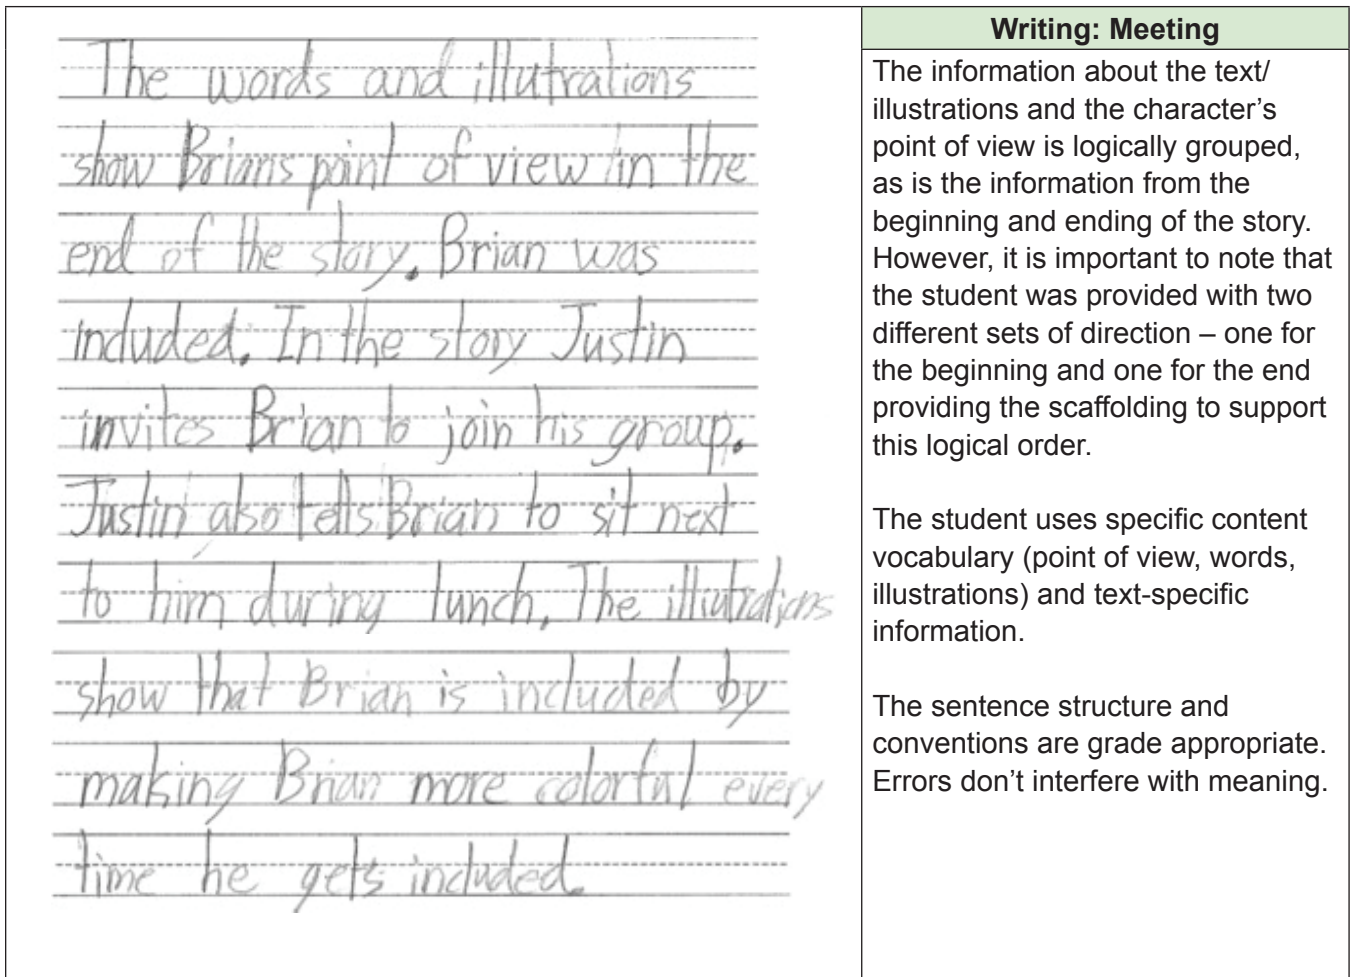 The words and illutrations
show Brians point of view in the
end of the story. Brian was
included. In the story Justin
invites Brian to join his group.
Justin also tells Brian to sit next
to him during lunch. The illiutrations
show that Brian is included by
making Brian more colorful every
time he gets included.
Writing: Meeting
The information about the text/
illustrations and the character’s
point of view is logically grouped,
as is the information from the
beginning and ending of the story.
However, it is important to note that
the student was provided with two
different sets of direction – one for
the beginning and one for the end
providing the scaffolding to support
this logical order.
The student uses specific content
vocabulary (point of view, words,
illustrations) and text-specific
information.
The sentence structure and
conventions are grade appropriate.
Errors don’t interfere with meaning.